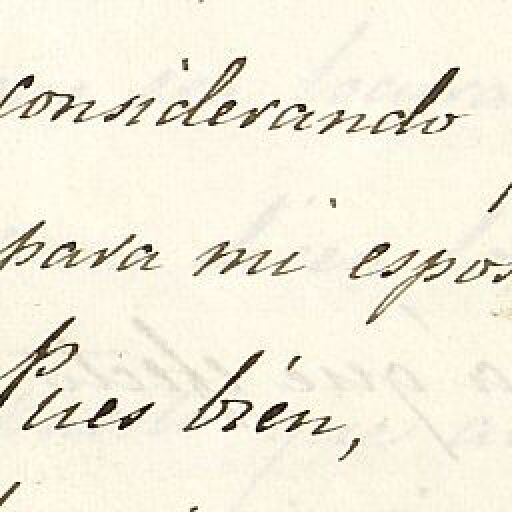 considerando
para mi espós
Pues bién,